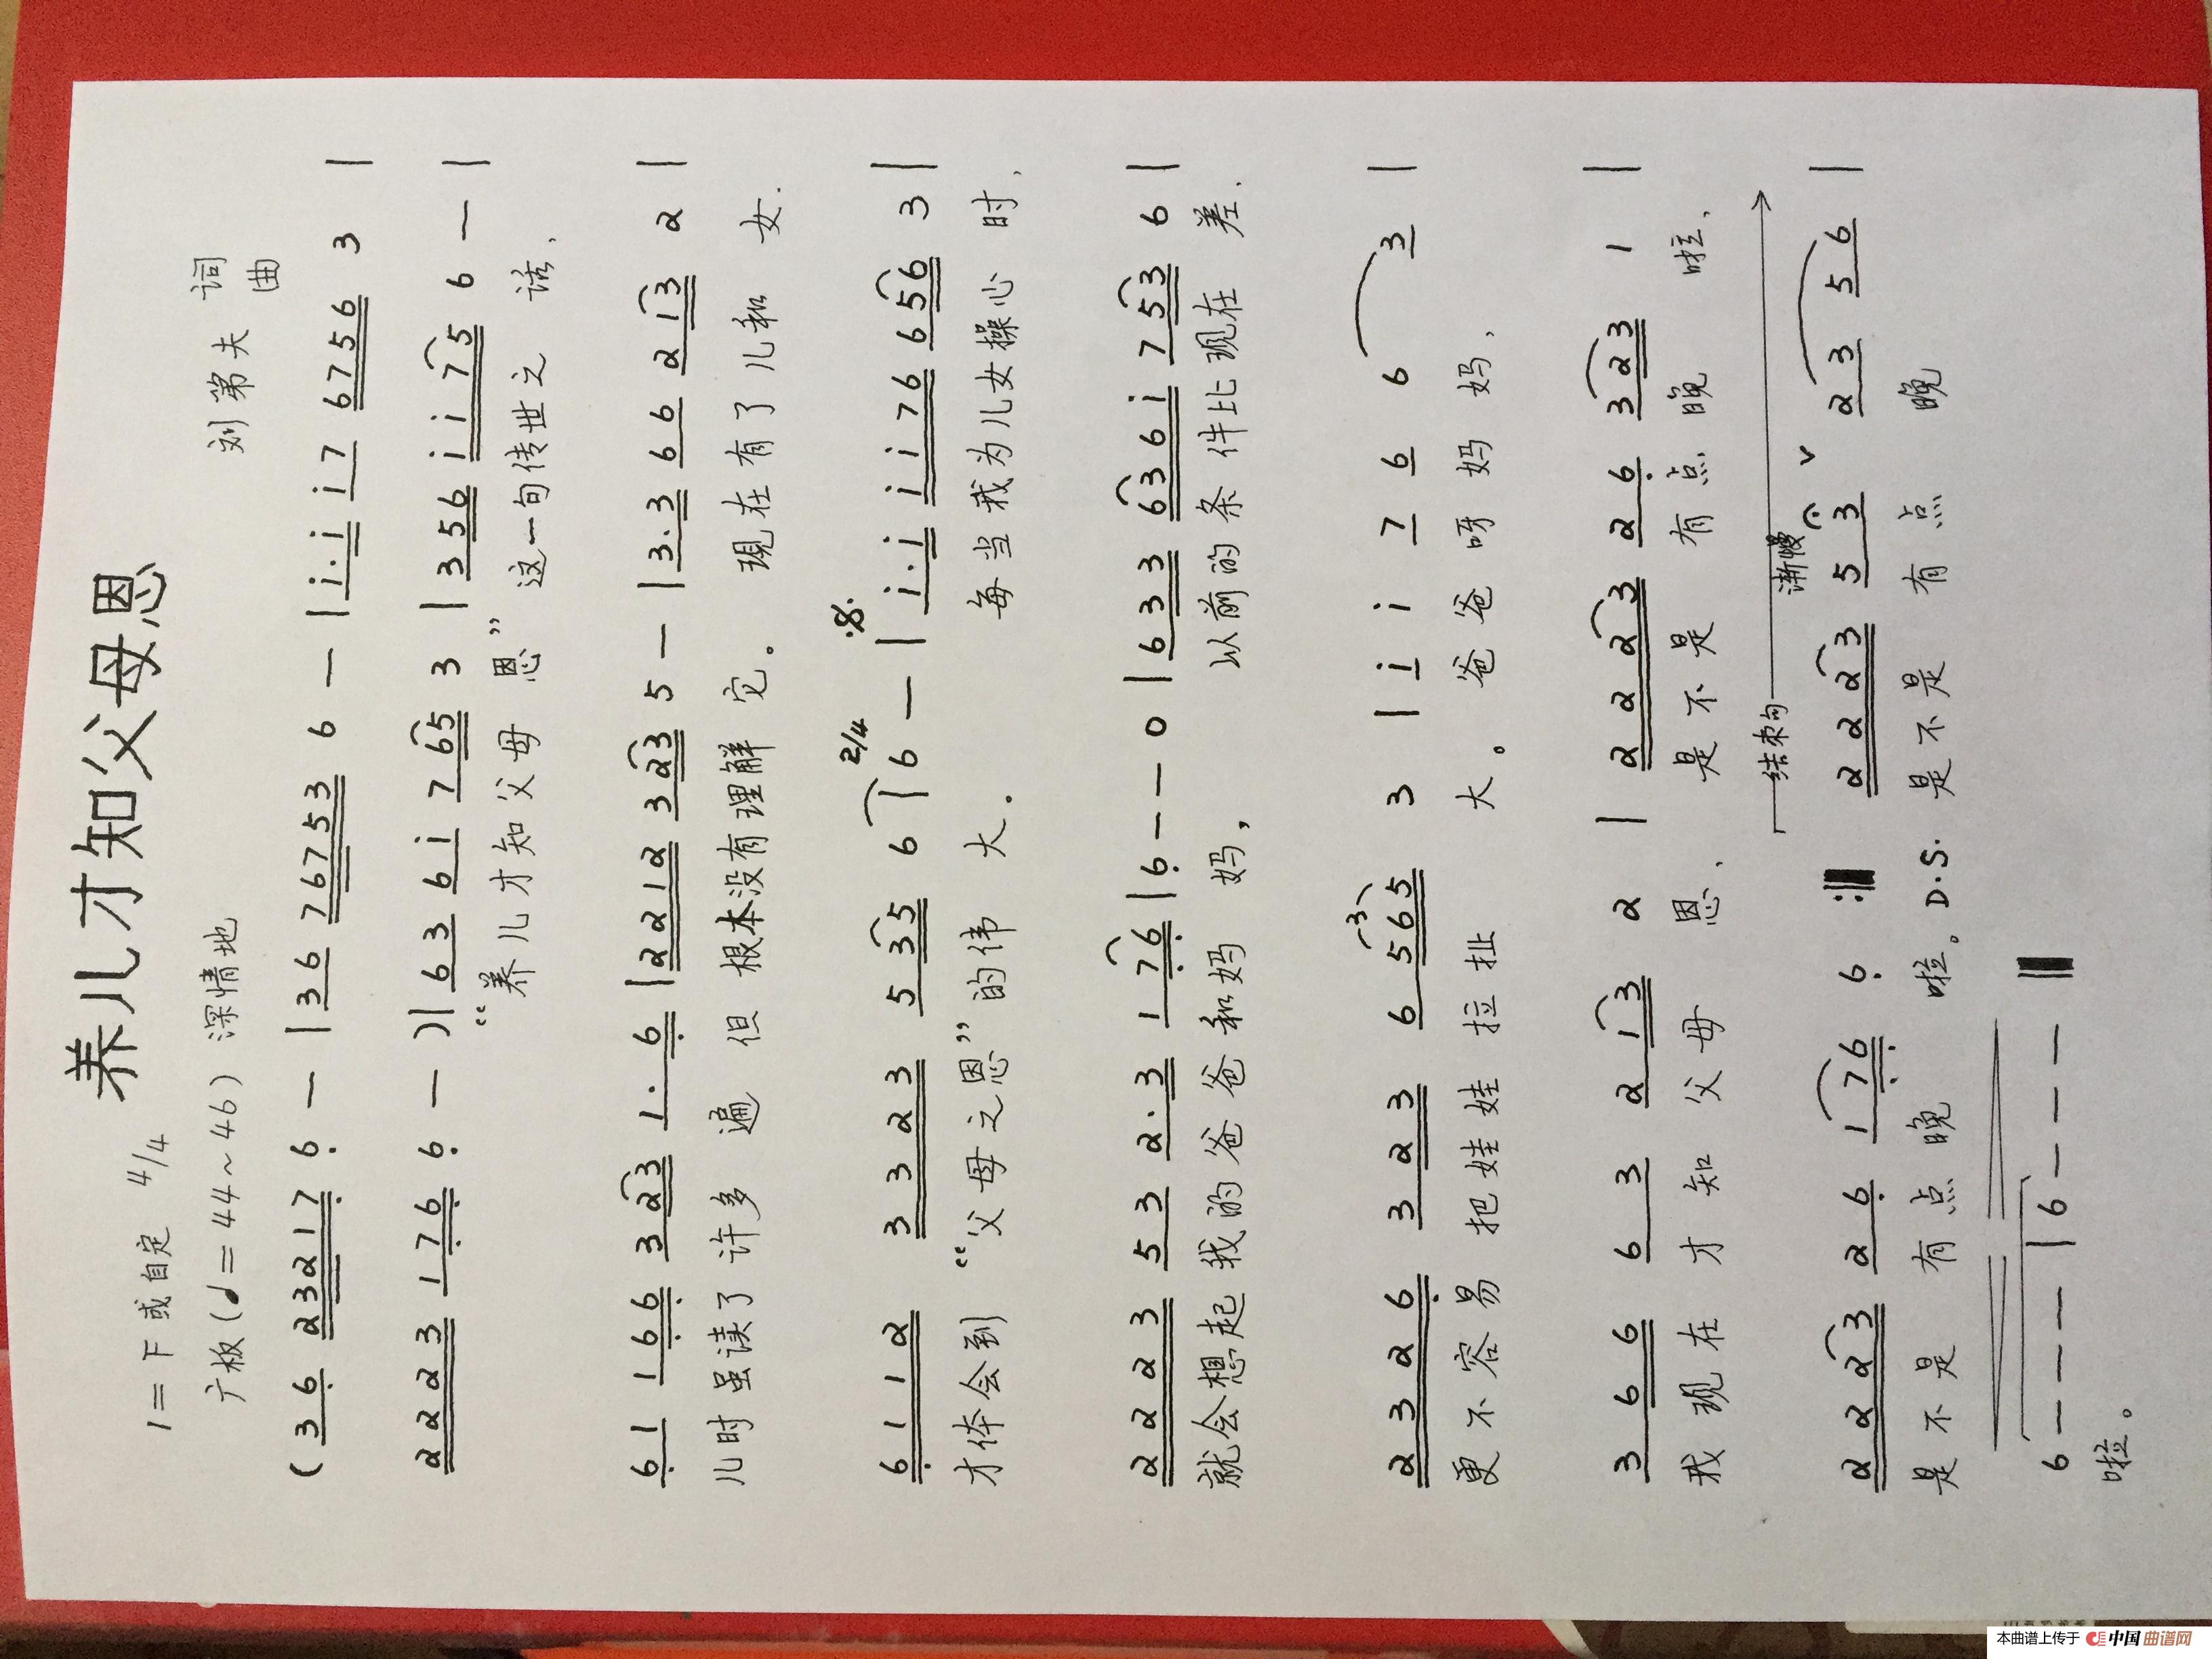 养儿才知父母恩
1=F 或自定 4/4
刘第夫 词曲
广板(♩=44~46) 深情地
(3 6 2 3 2 1 7 6 — | 3 6 7 6 7 5 3 6 — | i· i i 7 6 7 5 6 3 |
2 2 2 3 1 7 6 6 — )| 6 3 6 i 7 6 5 3 | 3 5 6 i i 7 5 6 — |
“养儿才知父母恩” 这一句传世之话,
6 1 1 6 6 3 2 3 1· 6 | 2 2 1 2 3 2 3 5 — | 3· 3 6 6 2 1 3 2 |
儿时虽读了许多遍 但根本没有理解它。 现在有了儿和女.
2/4
6 1 1 2 3 3 2 3 5 3 5 6 | 6 — | i· i i i 7 6 6 5 6 3 |
才体会到 “父母之恩”的伟大. 每当我为儿女操心时,
2 2 2 3 5 3 2· 3 1 7 6 | 6 — — 0 | 6 3 3 6 3 6 i 7 5 3 6 |
就会想起我的爸爸和妈妈, 以前的条件比现在差.
2 3 2 6 3 2 3 6 5 6 5 3 | i i i 7 6 6 3 |
3
更不容易把娃娃拉扯大。 爸爸呀妈妈,
3 6 6 6 3 2 1 3 2 | 2 2 2 3 2 6 3 2 3 1 |
我现在才知父母恩、 是不是有点晚啦,
结束句 渐慢
2 2 2 3 2 6 1 7 6 6 :‖ 2 2 2 3 5 3 V 2 3 5 6 |
是不是有点晚啦。D.S. 是不是有点晚
6 — — — | 6 — — — ‖
啦。
本曲谱上传于 中国曲谱网